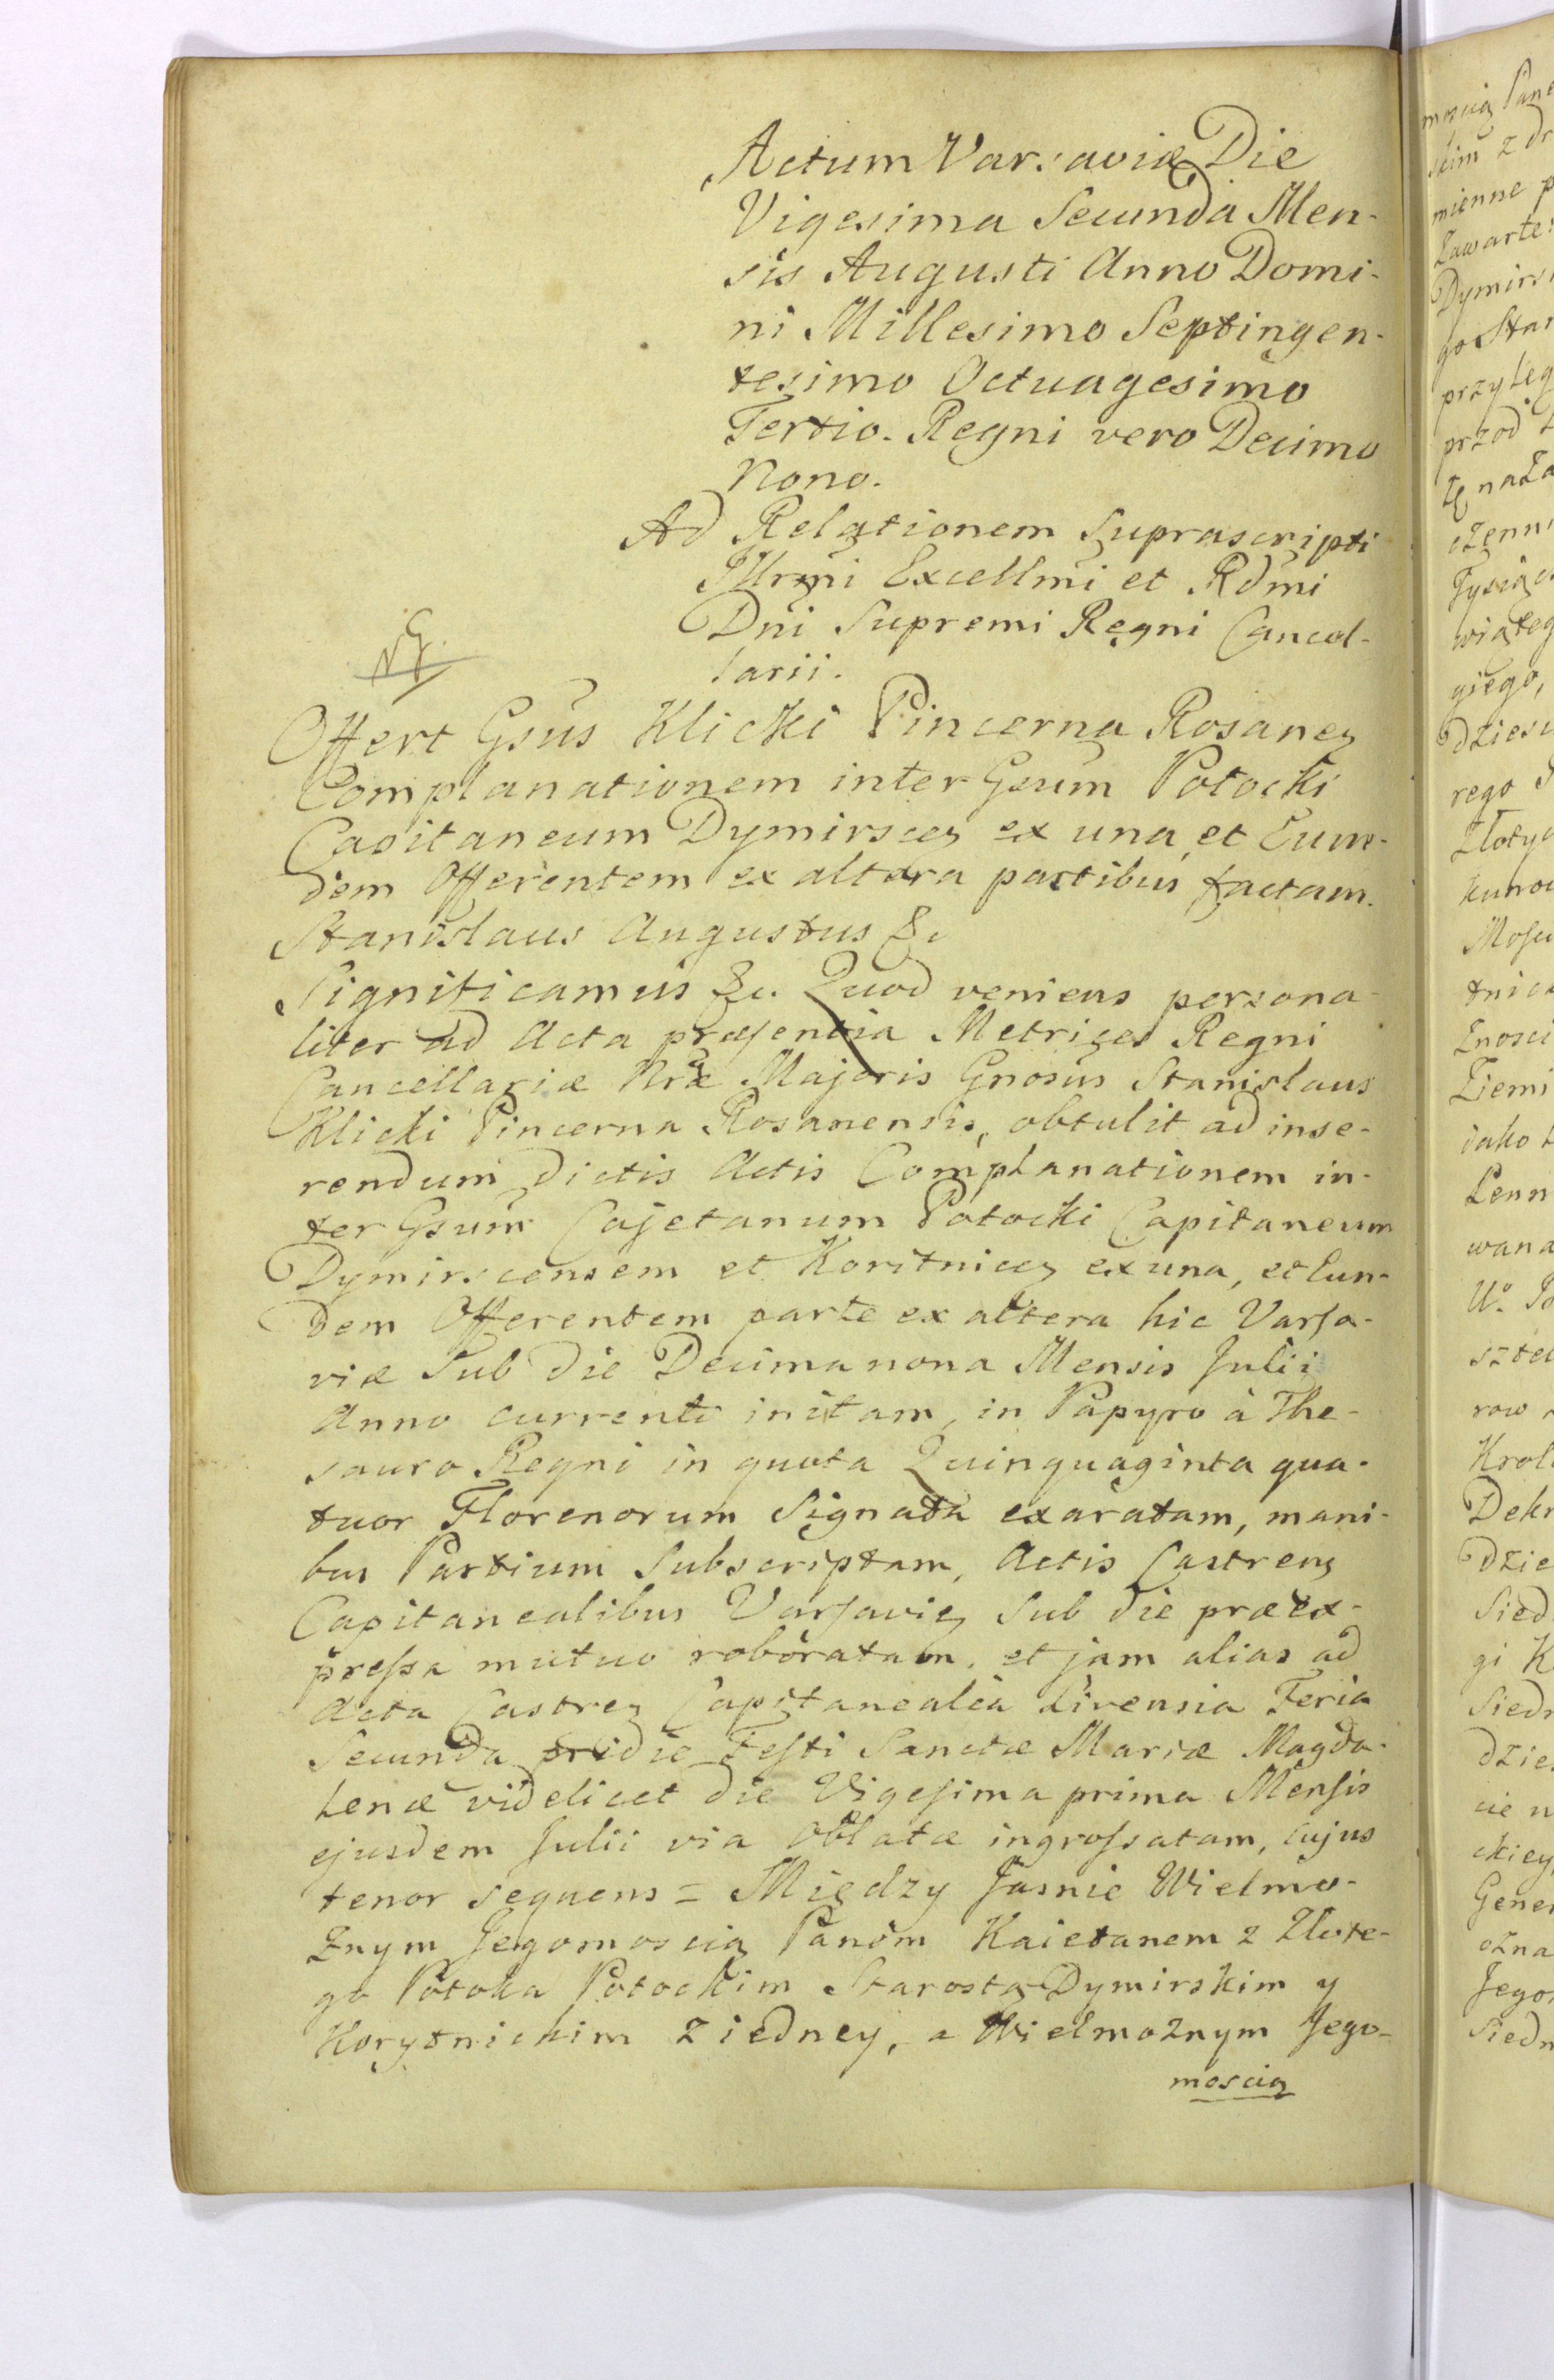 Actum Varsaviæ Die
Vigesima Secunda Men-
sis Augusti Anno Domi-
ni Millesimo Septingen-
tesimo Octuagesimo
Tertio. Regni vero Decimo
Nono.
Ad Relationem Suprascripti
Illrmi Excellmi et Rdmi
Dni Supremi Regni Cancel-
larii.
Offert Gsus Klicki Pincerna Rosanen
Complanationem inter Gsum Potocki
Capitaneum Dymirscen ex una, et Eum-
dem Offerentem ex altera partibus factam.
Stanislaus Augustus &c
Significamus &c. Quod veniens persona-
liter ad Acta præsentia Metrices Regni
Cancellariæ Nræ Majoris Gnosus Stanislaus
Klicki Pincerna Rosanensis, obtulit ad inse-
rendum dictis Actis Complanationem in-
ter Gsum Cajetanum Potocki Capitaneum
Dymirscensem et Koritnicen ex una, et Eun-
dem Offerentem parte ex altera hic Varsa-
viæ Sub die Decima nona Mensis Julii
Anno currenti initam, in Papyro à The-
sauro Regni in quota Quinquaginta qua-
tuor Florenorum Signata exaratam, mani-
bus Partium Subscriptam, Actis Castren
Capitanealibus Varsavien Sub die præex-
pressa mutuo roboratam, et jam alias ad
Acta Castren Capitanealia Livensia Feria
Secunda pridie Festi Sanctæ Mariæ Magda-
lenæ videlicet die Vigesima prima Mensis
ejusdem Julii via Oblatæ ingrossatam, cujus
tenor sequens = Między Jasnie Wielmo-
żnym Jegomoscią Panem Kaietanem z Złote-
go Potoka Potockim Starostą Dymirskim y
Korytnickim z iedney, a Wielmożnym Jego-
moscią
moscią
mienne
Zawarte
przod
rego
Mosci
Ziemi
iako
wana
row
gi